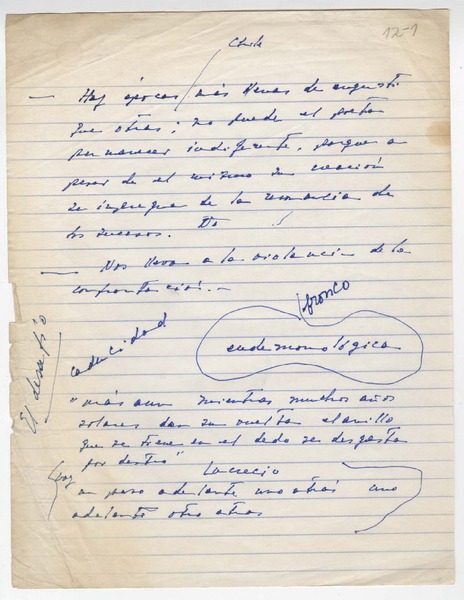 12-1
Chile
— Hay épocas más llenas de angustia
que otras; no puede el poeta
permanecer indiferente, porque a
pesar de el mismo su creación
se impregna de la resonancia de
los sucesos.
— Nos lleva a la violencia de la
confrontación.—
bronco
eudemonológica
caducidad
El desafío
"más aun mientras muchos años
solares dan su vuelta el anillo
que se tiene en el dedo se desgasta
por dentro"
Lucrecio
un paso adelante uno atrás uno
adelante otro atras